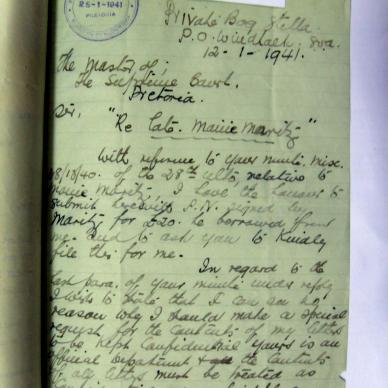 25-1-1941
PRETORIA
Private Bag Stella
P.O. Windhoek, S.W.A.
12-1-1941.
The Master of
The Supreme Court.
Pretoria.
Sir,
"Re Late. Manie Maritz"
With reference to your minute, Misc.
8/13/40. of the 28th ulto, relative to
Manie Maritz, I have the honour to
submit herewith P.N. signed by
Maritz for £20. he borrowed from
me. And to ask you to kindly
file this for me.
In regard to the
last para. of your minute under reply
I wish to state that I can see no
reason why I should make a special
request for the contents of my letters
to be kept confidential yours is an
official Department & the contents
of all letters must be treated as